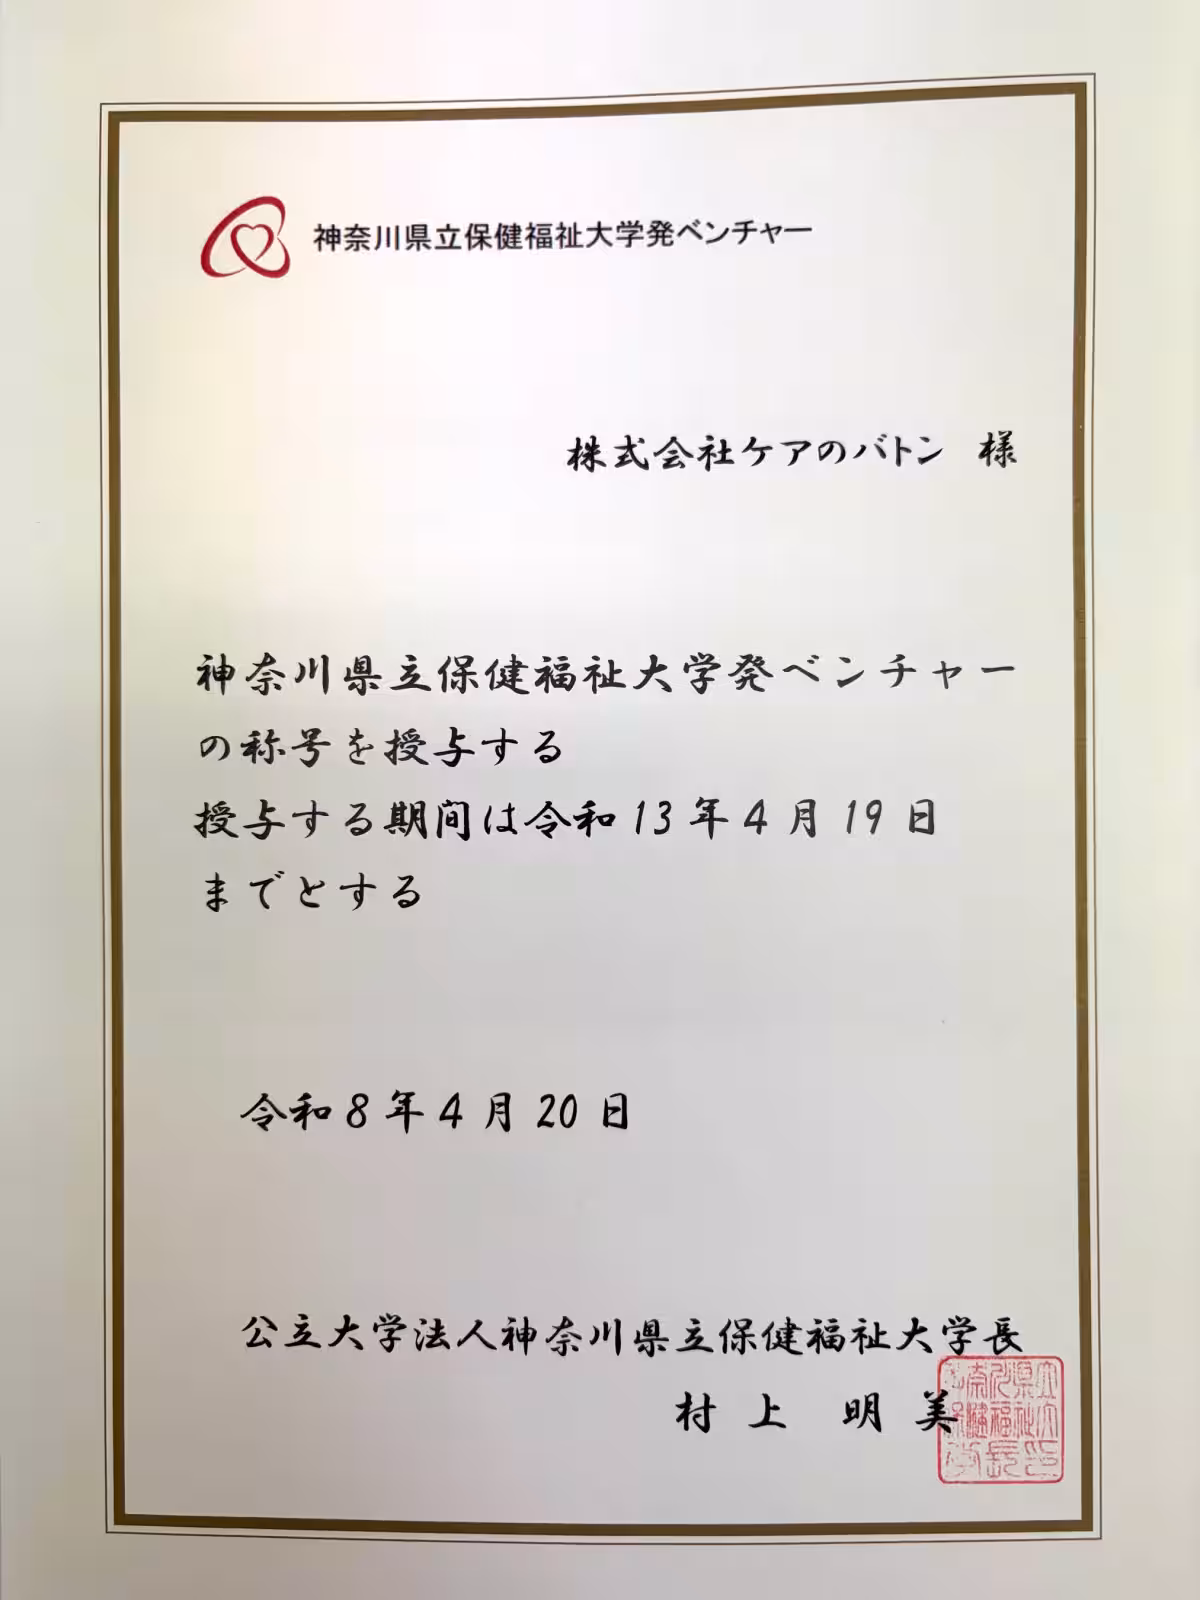 神奈川県立保健福祉大学発ベンチャー
株式会社ケアのバトン 様
神奈川県立保健福祉大学発ベンチャー
の称号を授与する
授与する期間は令和13年4月19日
までとする
令和8年4月20日
公立大学法人神奈川県立保健福祉大学長
村上 明美